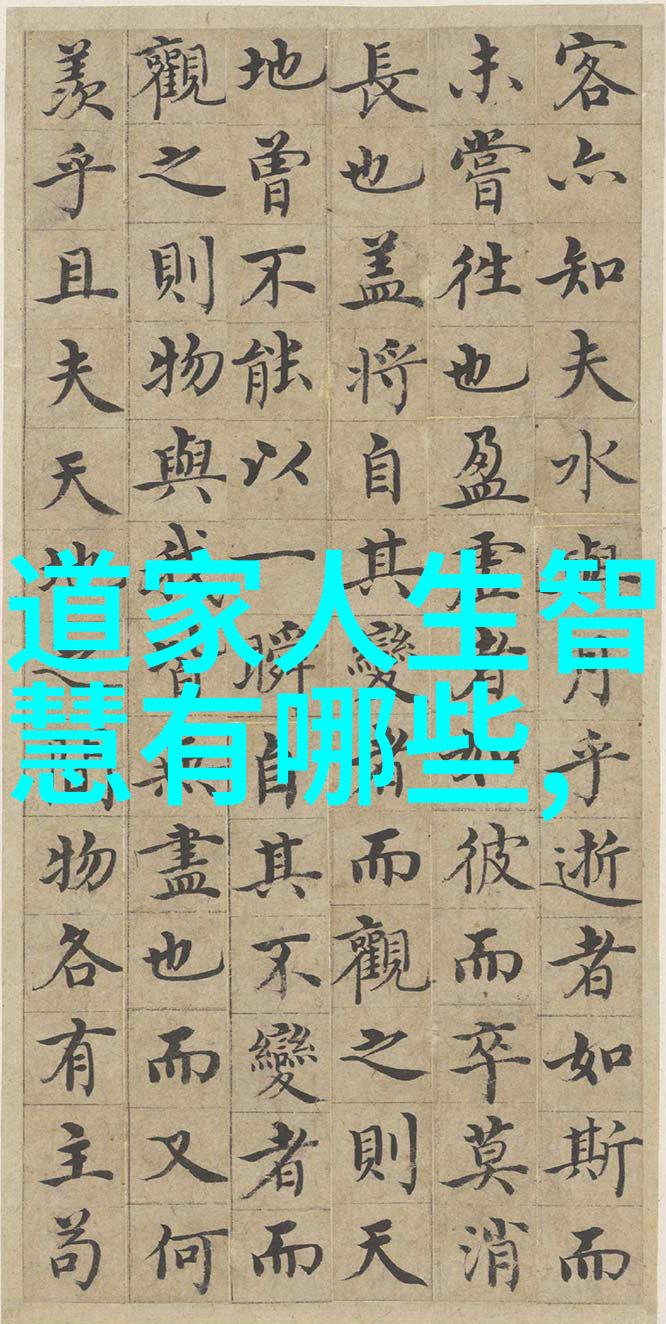 道家人生智
慧有哪些,
客亦知夫水與月乎逝者如斯而
未嘗往也盈虛者如彼而卒莫消
長也盖將自其變者而觀之則天
地曾不能以一瞬自其不變者而
觀之則物與我皆無盡也而又何
羨乎且夫天地之間物各有主苟